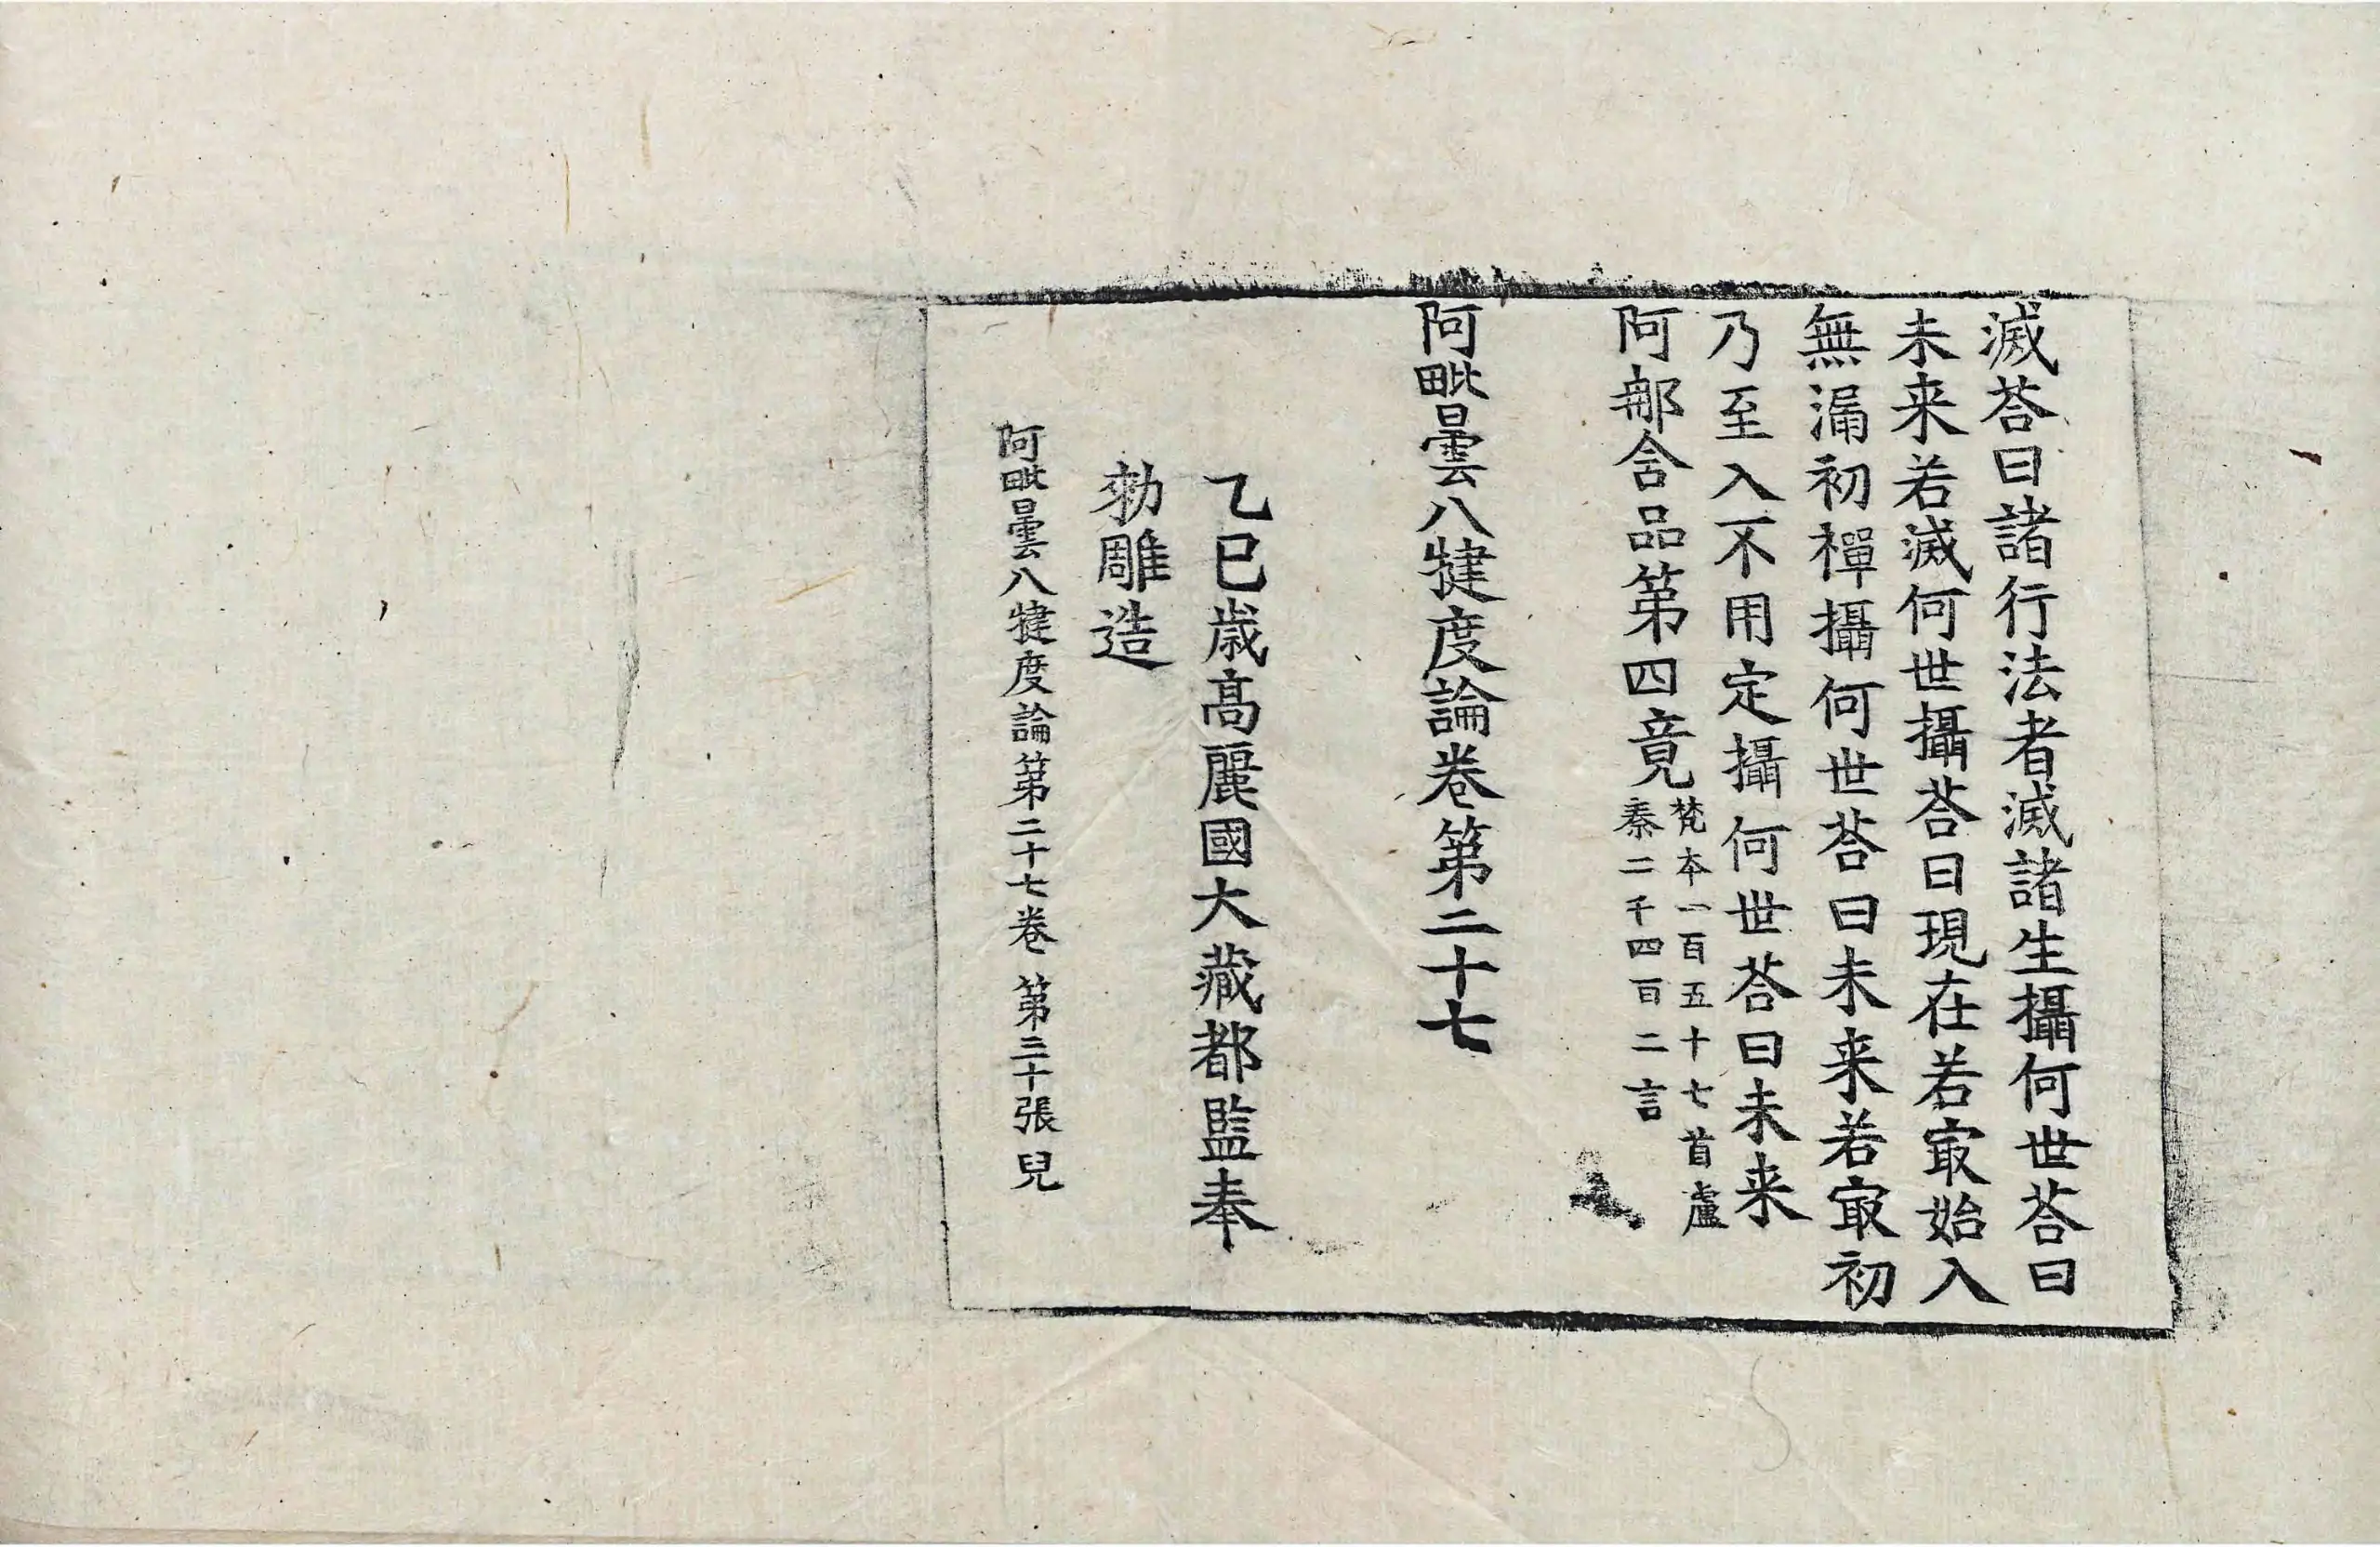 滅荅曰諸行法者滅諸生攝何世荅曰
未来若滅何世攝荅曰現在若㝡始入
無漏初禪攝何世荅曰未来若㝡初
乃至入不用定攝何世荅曰未来
阿那含品第四竟
梵本一百五十七首盧
秦二千四百二言
阿毗曇八犍度論卷第二十七
乙巳歳高麗國大藏都監奉
勑雕造
阿毗曇八犍度論第二十七卷 第三十張 兒